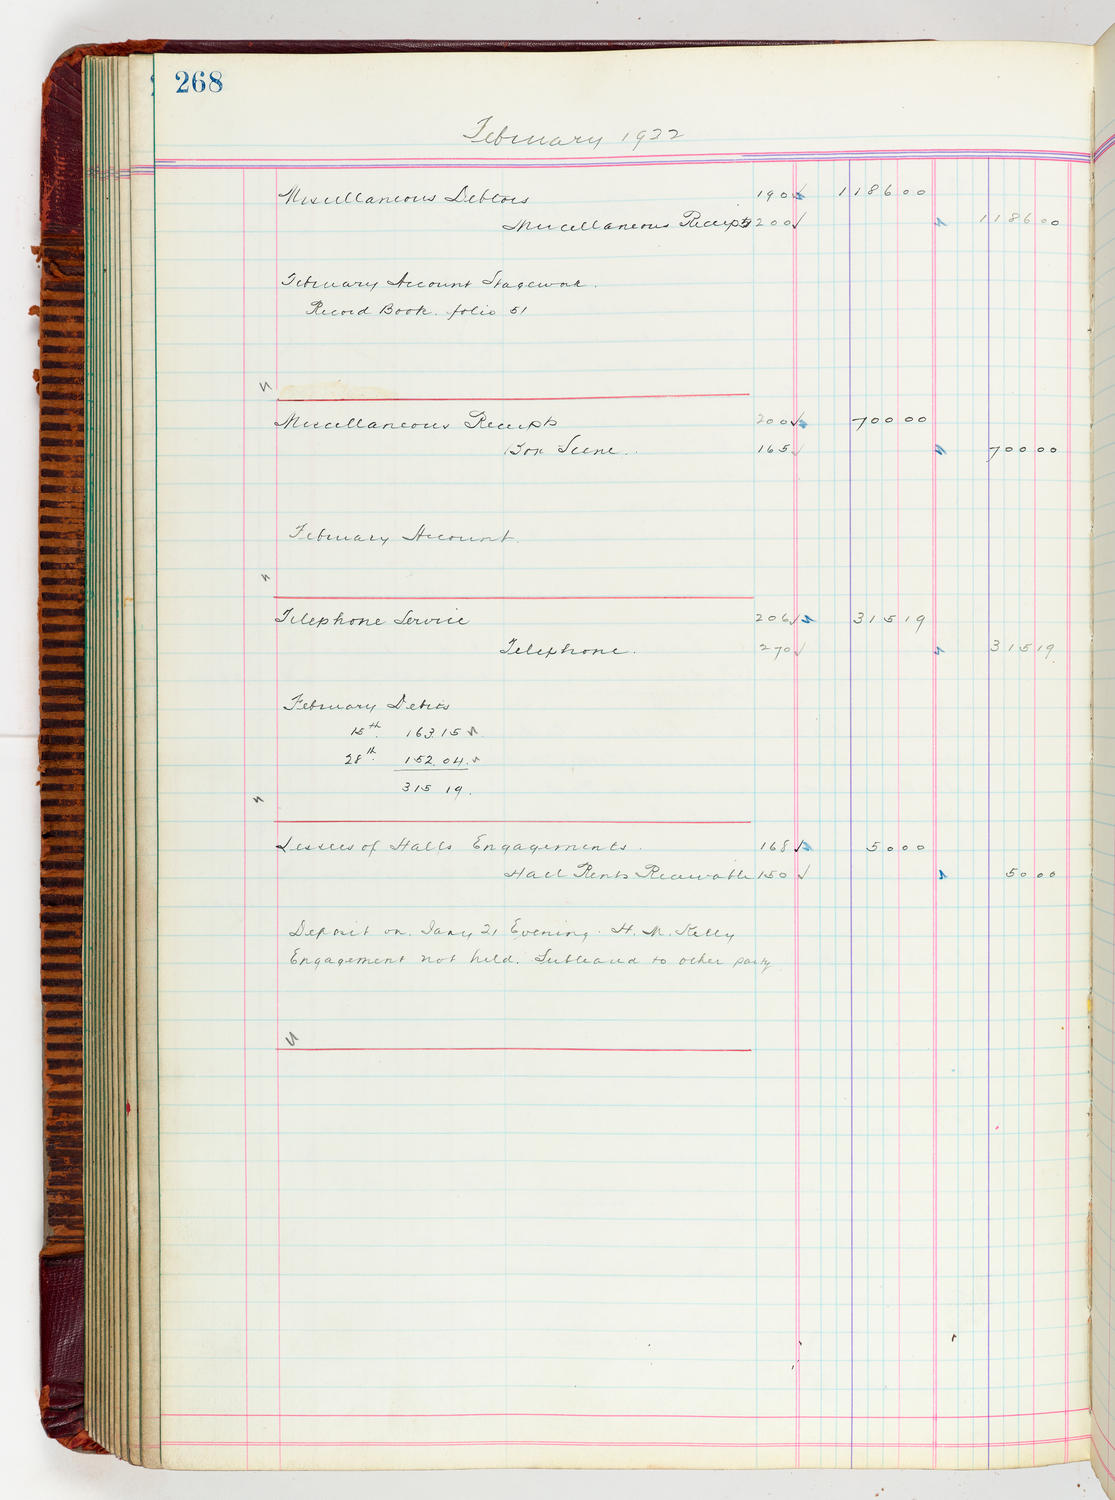 268
February 1922
Miscellaneous Debtors 190 1186 00
Miscellaneous Receipts 200 1186 00
February Account Stagework.
Record Book. folio 51
Miscellaneous Receipts 200 700 00
Box Scene. 165 700 00
February Account.
Telephone Service 206 315 19
Telephone. 270 315 19
February Debits
15th. 163.15
28th. 152.04.
315 19.
Lessees of Halls Engagements. 168 50 00
Hall Rents Receivable 150 50 00
Deposit on Jany 21 Evening. H. M. Kelly
Engagement not held. Subleased to other party